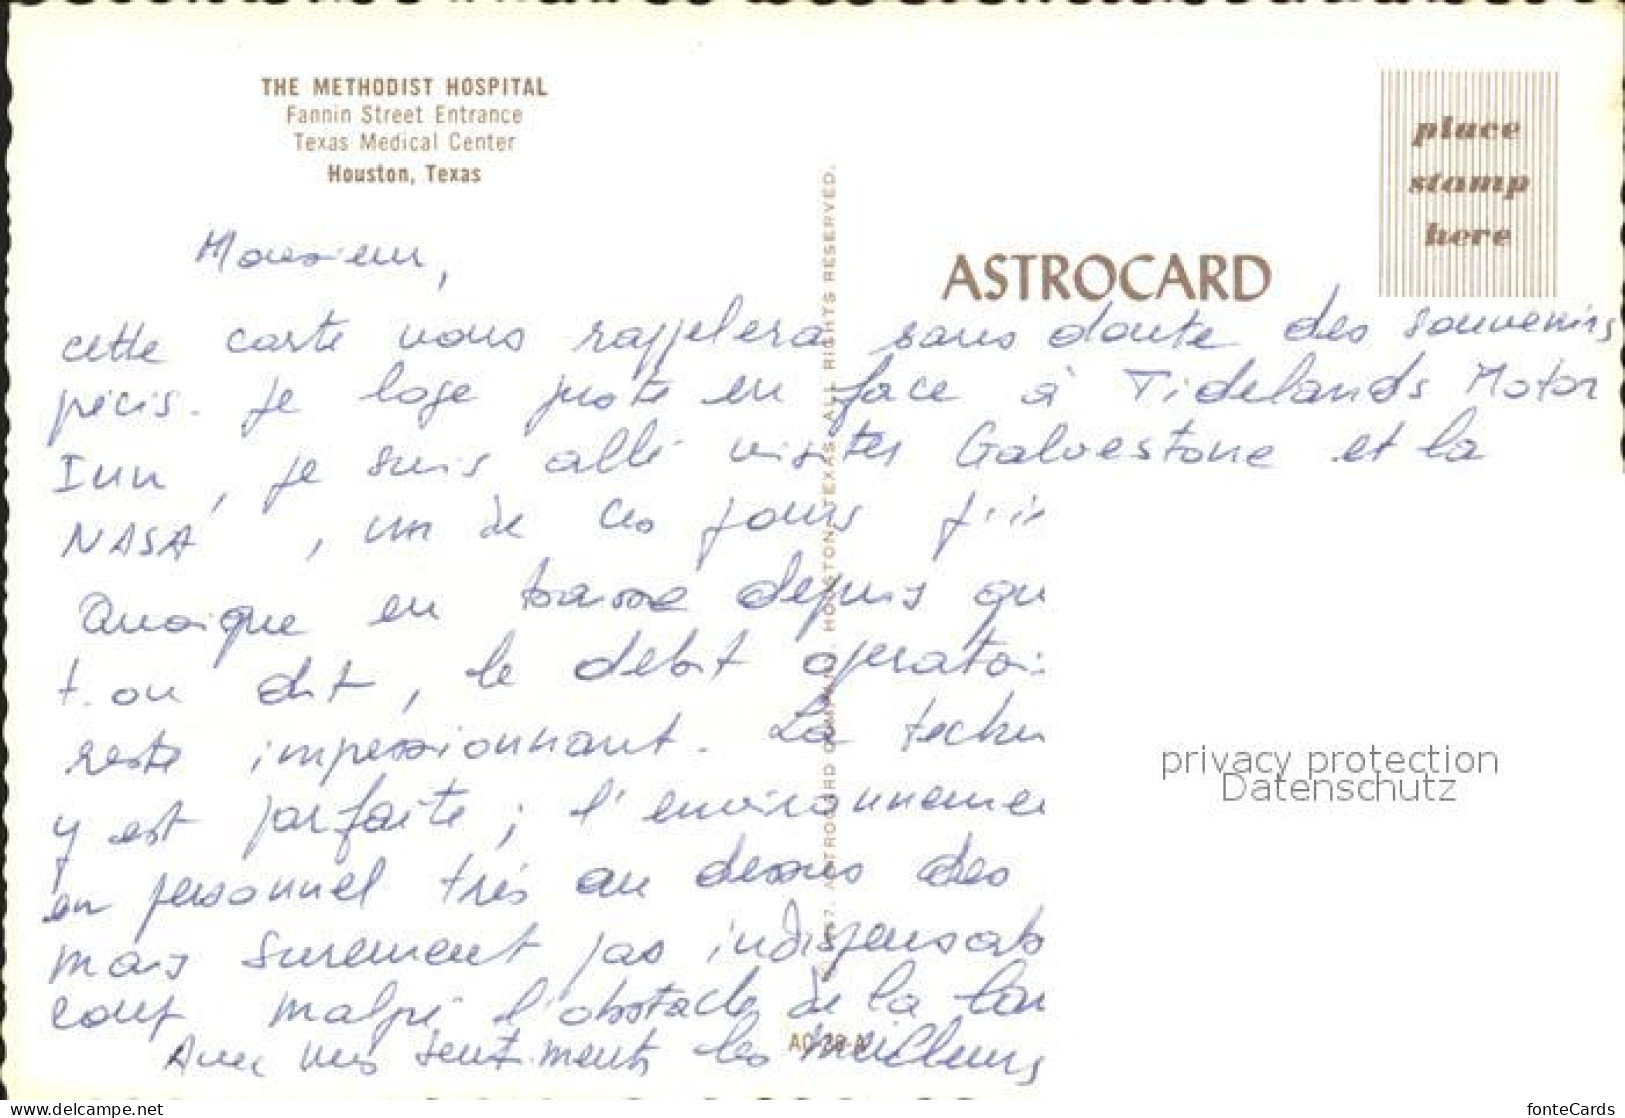 THE METHODIST HOSPITAL
Fannin Street Entrance
Texas Medical Center
Houston, Texas
place
stamp
here
ASTROCARD
Monsieur,
cette carte vous rappelera sans doute des souvenirs
précis. Je loge juste en face à Tidelands Motor
Inn, je suis allé visiter Galvestone et la
NASA, un de ces jours
Quoique en baisse depuis
t-on dit, le débit
reste impressionnant. La
y est parfaite; l'
en personnel très au dessus des
mais surement pas
coup malgré l'obstacle de la
Avec mes sentiments les meilleurs
ASTROCARD COMPANY, HOUSTON, TEXAS. ALL RIGHTS RESERVED.
privacy protection
Datenschutz
www.delcampe.net
fonteCards